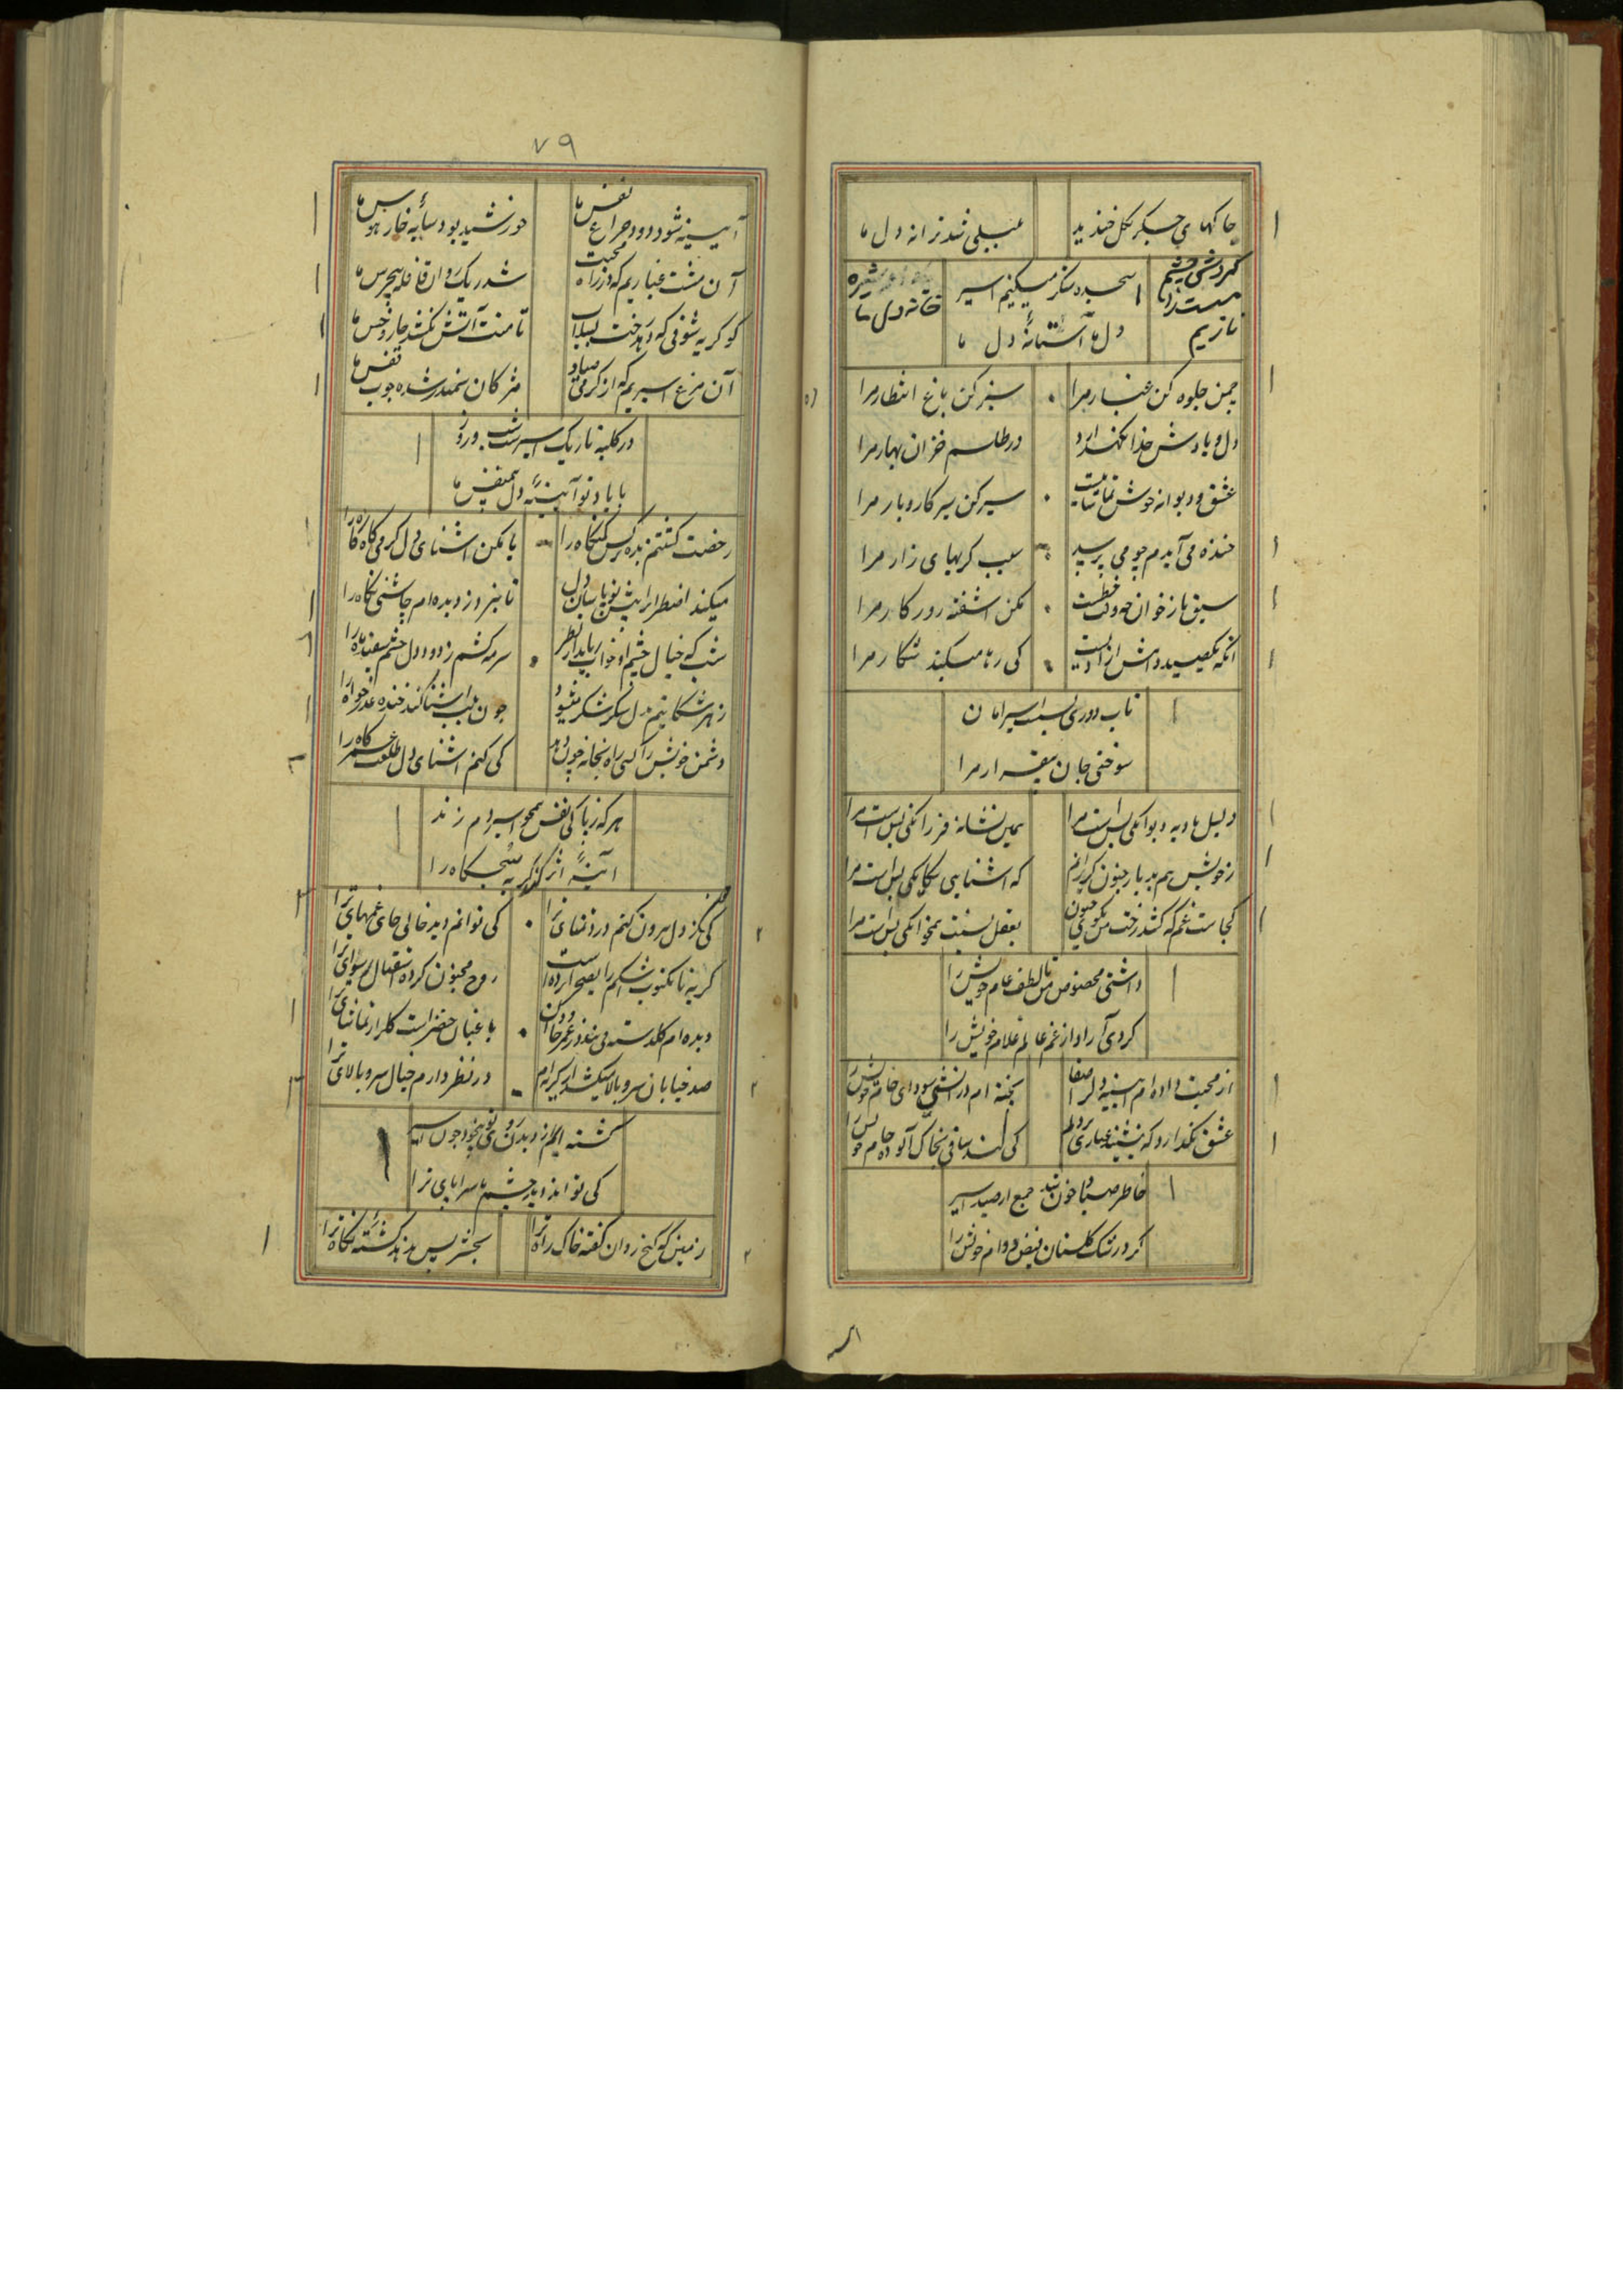 چاکهای جگر بگل خندید
بلبلی شد ترانه دل ما
گردش چشم
مست را
نازیم
سجده شکر میکنیم اسیر
خانه دل ما
دل ما آستانهٔ دل ما
چمن جلوه کن غبار مرا
سبز کن باغ انتظار مرا
دل و یادش خدا نگهدارد
در طلسم خزان بهار مرا
عشق و دیوانه خوش تماشاییست
سیر کن سیر کار و بار مرا
خنده می آیدم چو می پرسد
سبب گریهای زار مرا
سبق ناز خوان چه وقت خطست
مکن آشفته روزکار مرا
آنکه یکصید دامش آزادیست
کی رها میکند شکار مرا
تاب دوری اسیر امان
سوختی جان بیقرار مرا
دلیل بادیه دیوانکی بس است مرا
همین نشانه فرزانکی بس است مرا
زخویش هم بدیار جنون کریزانم
که آشنایی بیکانکی بس است مرا
کجاست غم که کشد رخت من بکوی جنون
بعقل نسبت همخانکی بس است مرا
داشتی مخصوص من لطف عام خویش را
کردی آزاد از غم عالم غلام خویش را
از محبت داده ام آیینهٔ دل را صفا
پخته ام در آتش سودای خام خویش را
عشق نگذارد که بنشیند غباری بر دلم
کی کند ساقی بخاک آلوده جام خویش را
خاطر صیاد خون شد جمع از صید اسیر
کرد رشک گلستان فیض دوام خویش را
۷۹
آیینه شود دود چراغ نفس ما
خورشید بود سایه خار هوس ما
آن مشت غباریم که در راه محبت
شد ریک روان قافله بیجرس ما
کو گریه شوقی که دهد رخت بسیلاب
تا منت آتش نکشد خار و خس ما
آن مرغ اسیریم که از گرمی صیاد
مژکان سمندر شده چوب قفس ما
در کلبه تاریک اسیر شب و روز
با یاد تو آیینهٔ دل همنفس ما
رخصت کشتنم بده نرکس کمنکاه را
یا بکن آشنای دل گرمی کاه کاه را
میکند اضطرار پیش تو پاسبان دل
تا بتو دزدیده ام چاشنی نگاه را
شب که خیال چشم او خواب رباید از نظر
سرمه کشم ز دود دل چشم سفید ماه را
زهر شکایتم بدل شکر شکر میشود
چون بلب آشنا کند خنده عذرخواه را
دشمن خویش را کسی راه بخانه چون دهد
کی کنم آشنای دل طلعت خشم کاه را
هر که زپاکی نفس همچو اسیر دم زند
آینهٔ اثر کند گریه صبحگاه را
کی ز دل بیرون کنم درد تمنای ترا
کی توانم دید خالی جای غمهای ترا
گریه تا مکتوب اشکم را بصحرا برده است
روح مجنون کرده استقبال رسوای ترا
باغبان خضر است گلزار تماشای ترا
صد خیابان سرو بالا میکشد از گریه ام
در نظر دارم خیال سرو بالای ترا
کی تواند دید چشم ما سراپای ترا
زمین که گنج روان گفته خاک راه ترا
بحشر پس ندهد کشتهٔ نگاه ترا